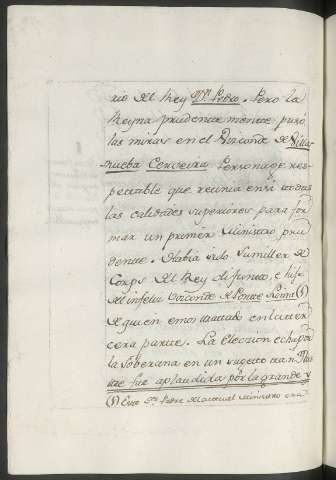 rio del Rey Dn. Pedro. Pero la
Reyna prudentemente puso
las miras en el Vizconde de Villa
nueba Cerveira Personage res-
petable que reunia en si todas
las calidades superiores para for
mar un primer Ministro pru
dente. Habia sido Sumiller de
Corps del Rey difunto, e hijo
del infeliz Vizconde de Ponte Lima (1)
de quien emos tratado en la ter
cera parte. La Eleccion echa por
la Soberana en un sugeto tan
fue aplaudida por la grande y
(1) Este Padre del actual Ministro era